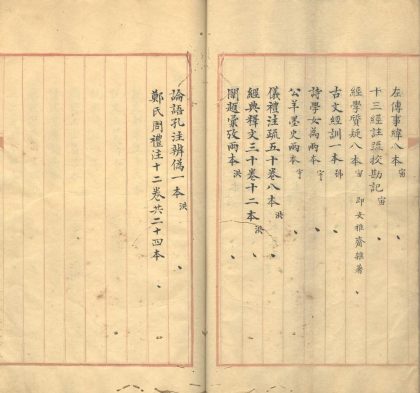 左傳事緯八本 宙
十三經註疏校勘記 宙
經學質疑八本 宙 即 雅齋雜著
古文經訓一本
詩學女為兩本 宇
公羊墨史兩本 宇
儀禮注疏五十卷八本 洪
經典釋文三十卷十二本 洪
關題彙攷兩本 洪
論語孔注辨偽一本 洪
鄭氏周禮注十二卷共二十四本